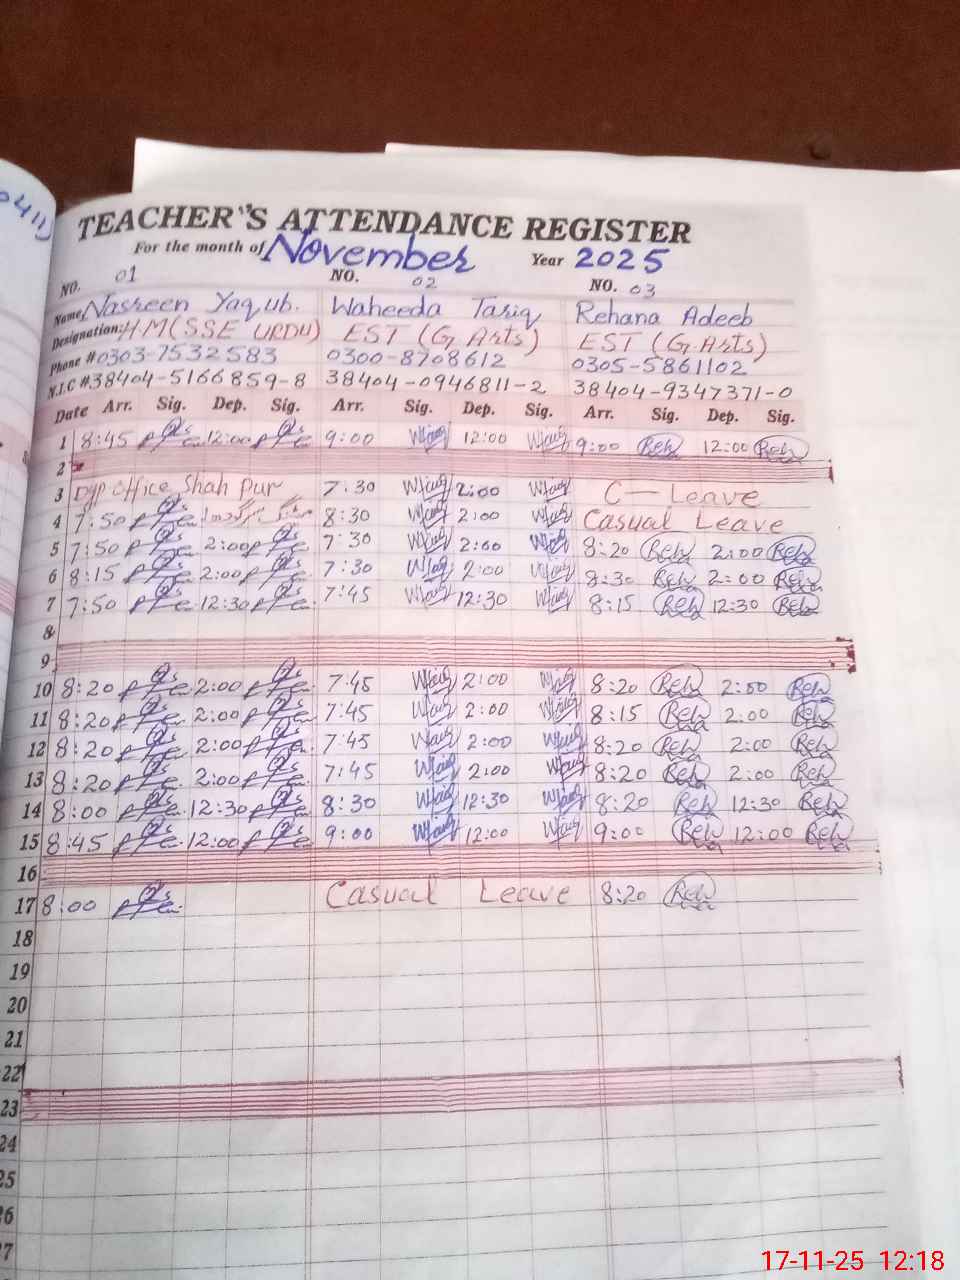 TEACHER'S ATTENDANCE REGISTER
For the month of November Year 2025
NO. 01 NO. 02 NO. 03
Name Nasreen Yaqub. Waheeda Tariq Rehana Adeeb
Designation: H.M (SSE URDU) EST (G Arts) EST (G.Arts)
Phone # 0303-7532583 0300-8708612 0305-5861102
N.I.C # 38404-5166859-8 38404-0946811-2 38404-9347371-0
Date Arr. Sig. Dep. Sig. Arr. Sig. Dep. Sig. Arr. Sig. Dep. Sig.
1 8:45 12:00 9:00 12:00 9:00 Reh 12:00 Reh
2
3 Office Shah pur 7:30 2:00 C- Leave
4 7:50 8:30 2:00 Casual Leave
5 7:50 2:00 7:30 2:00 8:20 Reh 2:00 Reh
6 8:15 2:00 7:30 2:00 8:30 Reh 2:00 Reh
7 7:50 12:30 7:45 12:30 8:15 Reh 12:30 Reh
8
9
10 8:20 2:00 7:45 2:00 8:20 Reh 2:00 Reh
11 8:20 2:00 7:45 2:00 8:15 Reh 2:00 Reh
12 8:20 2:00 7:45 2:00 8:20 Reh 2:00 Reh
13 8:20 2:00 7:45 2:00 8:20 Reh 2:00 Reh
14 8:00 12:30 8:30 12:30 8:20 Reh 12:30 Reh
15 8:45 12:00 9:00 12:00 9:00 Reh 12:00 Reh
16
17 8:00 Casual Leave 8:20 Reh
18
19
20
21
22
23
24
25
26
27
17-11-25 12:18